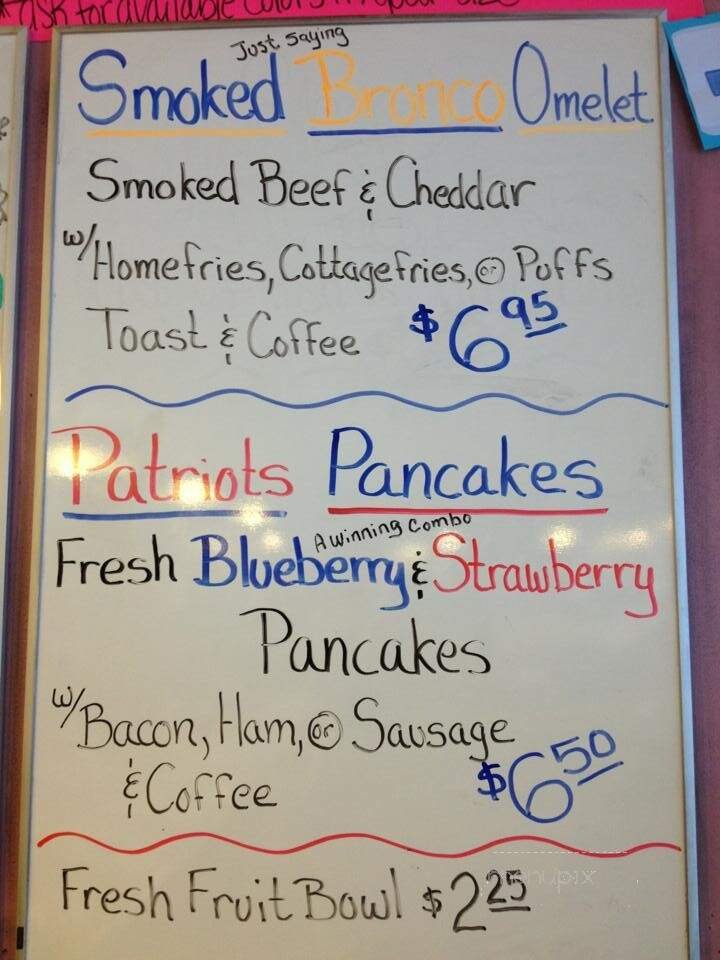 *ask for available colors in your size
Just saying
Smoked Bronco Omelet
Smoked Beef & Cheddar
w/ Homefries, Cottagefries, or Puffs
Toast & Coffee $6.95
Patriots Pancakes
A winning combo
Fresh Blueberry & Strawberry
Pancakes
w/ Bacon, Ham, or Sausage
& Coffee $6.50
Fresh Fruit Bowl $2.25
menupix